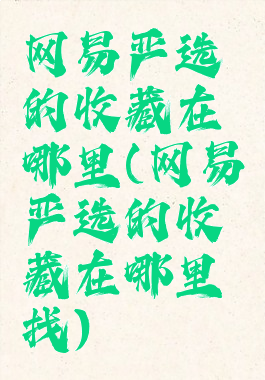 网易严选
的收藏在
哪里(网易
严选的收
藏在哪里
找)